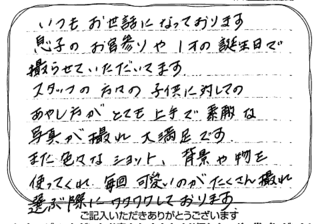 いつも お世話に なっております
息子の お宮参りや 1才の 誕生日で
撮らせていただいてます
スタッフの 方々の 子供に対しての
あやし方が とても 上手で 素敵な
写真が 撮れ 大満足です
また 色々な ショット、背景や物を
使ってくれ 毎回 可愛いのが たくさん 撮れ
選ぶ際に ワクワクしております
ご記入いただきありがとうございます